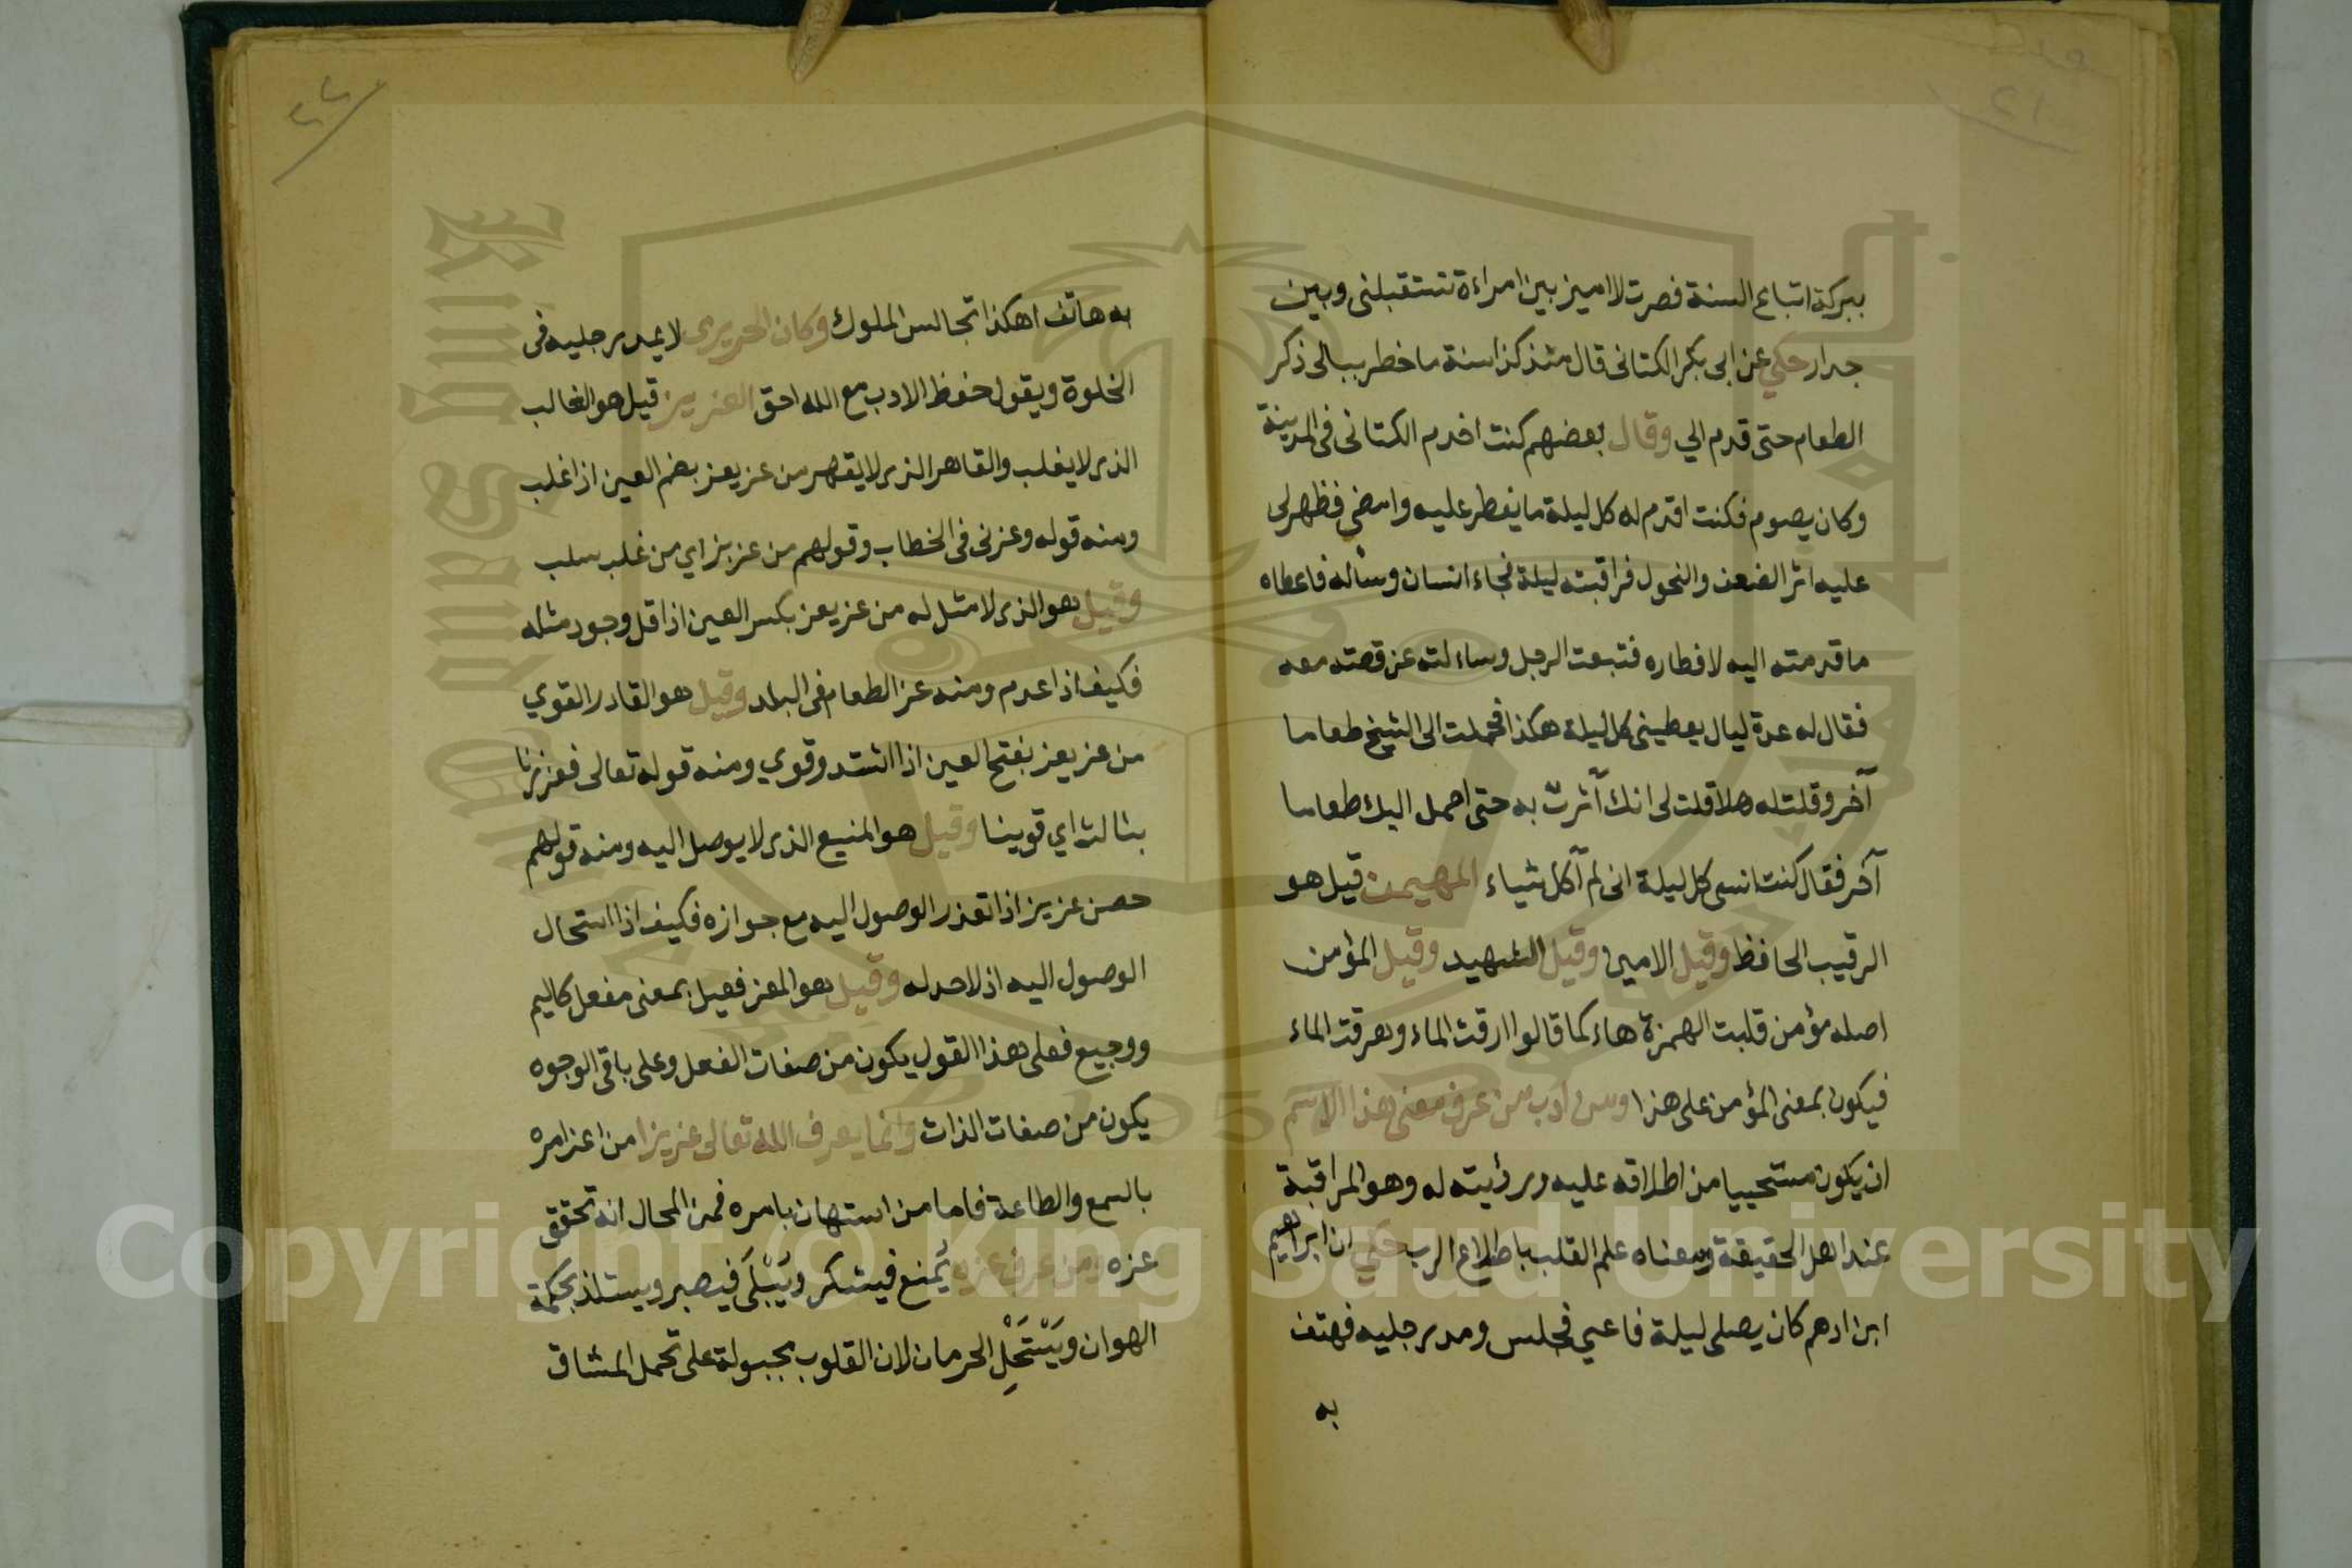 ببركة اتباع السنة فصرت لا اميز بين امراءة تستقبلنى وبين
جدار حكي عن ابى بكر الكتانى قال منذ كذا سنة ما خطر ببالى ذكر
الطعام حتى قدم الي وقال بعضهم كنت اخدم الكتانى فى المدينة
وكان يصوم فكنت اقدم له كل ليلة ما يفطر عليه وامضي فظهر لى
عليه اثر الضعف والنحول فراقبته ليلة فجاء انسان وسأله فاعطاه
ما قدمته اليه لافطاره فتبعت الرجل وساءلته عن قصته معه
فقال له عدة ليال يعطينى كل ليلة هكذا فحملت الى الشيخ طعاما
آخر وقلت له هلا قلت لى انك آثرت به حتى احمل اليك طعاما
آخر فقال كنت انسى كل ليلة انى لم آكل شياء المهيمن قيل هو
الرقيب الحافظ وقيل الامين وقيل الشهيد وقيل المؤمن
اصله مؤمن قلبت الهمزة هاء كما قالوا ارقت الماء وهرقت الماء
فيكون بمعنى المؤمن على هذا ومن ادب من عرف معنى هذا الاسم
ان يكون مستحييا من اطلاقه عليه ورؤيته له وهو المراقبة
عند اهل الحقيقة ومعناه علم القلب باطلاع الرب حكي ان ابراهيم
ابن ادهم كان يصلى ليلة فاعيي فجلس ومد رجليه فهتف
به
٢٢
به هاتف اهكذا تجالس الملوك وكان الحريرى لا يمد رجليه فى
الخلوة ويقول حفظ الادب مع الله احق العزيز قيل هو الغالب
الذى لا يغلب والقاهر الذى لا يقهر من عز يعز بضم العين اذا غلب
ومنه قوله وعزنى فى الخطاب وقولهم من عز بز اي من غلب سلب
وقيل هو الذى لا مثل له من عز يعز بكسر العين اذا قل وجود مثله
فكيف اذا عدم ومنه عز الطعام فى البلد وقيل هو القادر القوي
من عز يعز بفتح العين اذا اشتد وقوي ومنه قوله تعالى فعززنا
بثالث اي قوينا وقيل هو المنيع الذى لا يوصل اليه ومنه قولهم
حصن عزيز اذا تعذر الوصول اليه مع جوازه فكيف اذا استحال
الوصول اليه اذ لا حد له وقيل هو المعز فعيل بمعنى مفعل كاليم
ووجيع فعلى هذا القول يكون من صفات الفعل وعلى باقى الوجوه
يكون من صفات الذات وانما يعرف الله تعالى عزيزا من اعز امره
بالسمع والطاعة فاما من استهان بامره فمن المحال انه تحقق
عزه ومن عرف عزه يُمنع فيشكر ويَبْلَى فيصبر ويستلذ بحكمة
الهوان ويَسْتَحْلِ الحرمان لان القلوب مجبولة على تحمل المشاق
Copyright © King Saud University